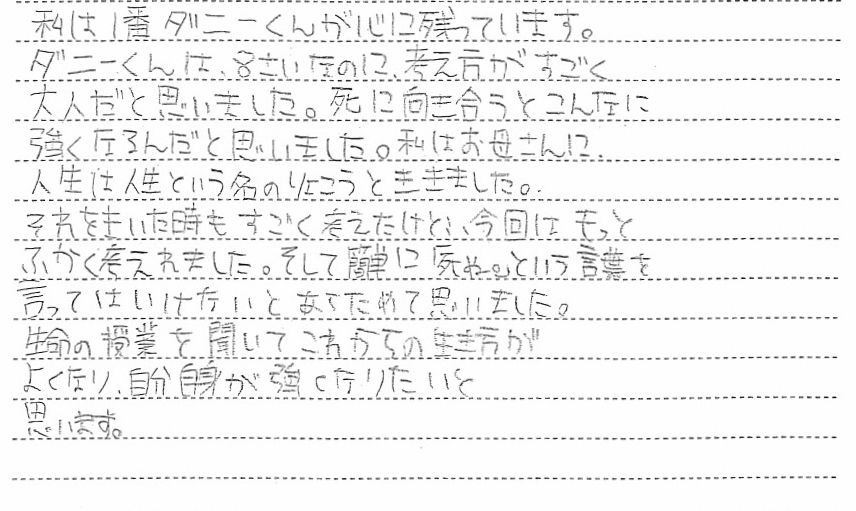 私は1番ダニーくんが心に残っています。
ダニーくんは、8さいなのに、考え方がすごく
大人だと思いました。死に向き合うとこんなに
強くなるんだと思いました。私はお母さんに、
人生は人生という名のりょこうとききました。
それをきいた時もすごく考えたけど、今回はもっと
ふかく考えれました。そして簡単に「死ぬ。」という言葉を
言ってはいけないとあらためて思いました。
生命の授業を聞いてこれからの生き方が
よくなり、自分自身が強くなりたいと
思います。